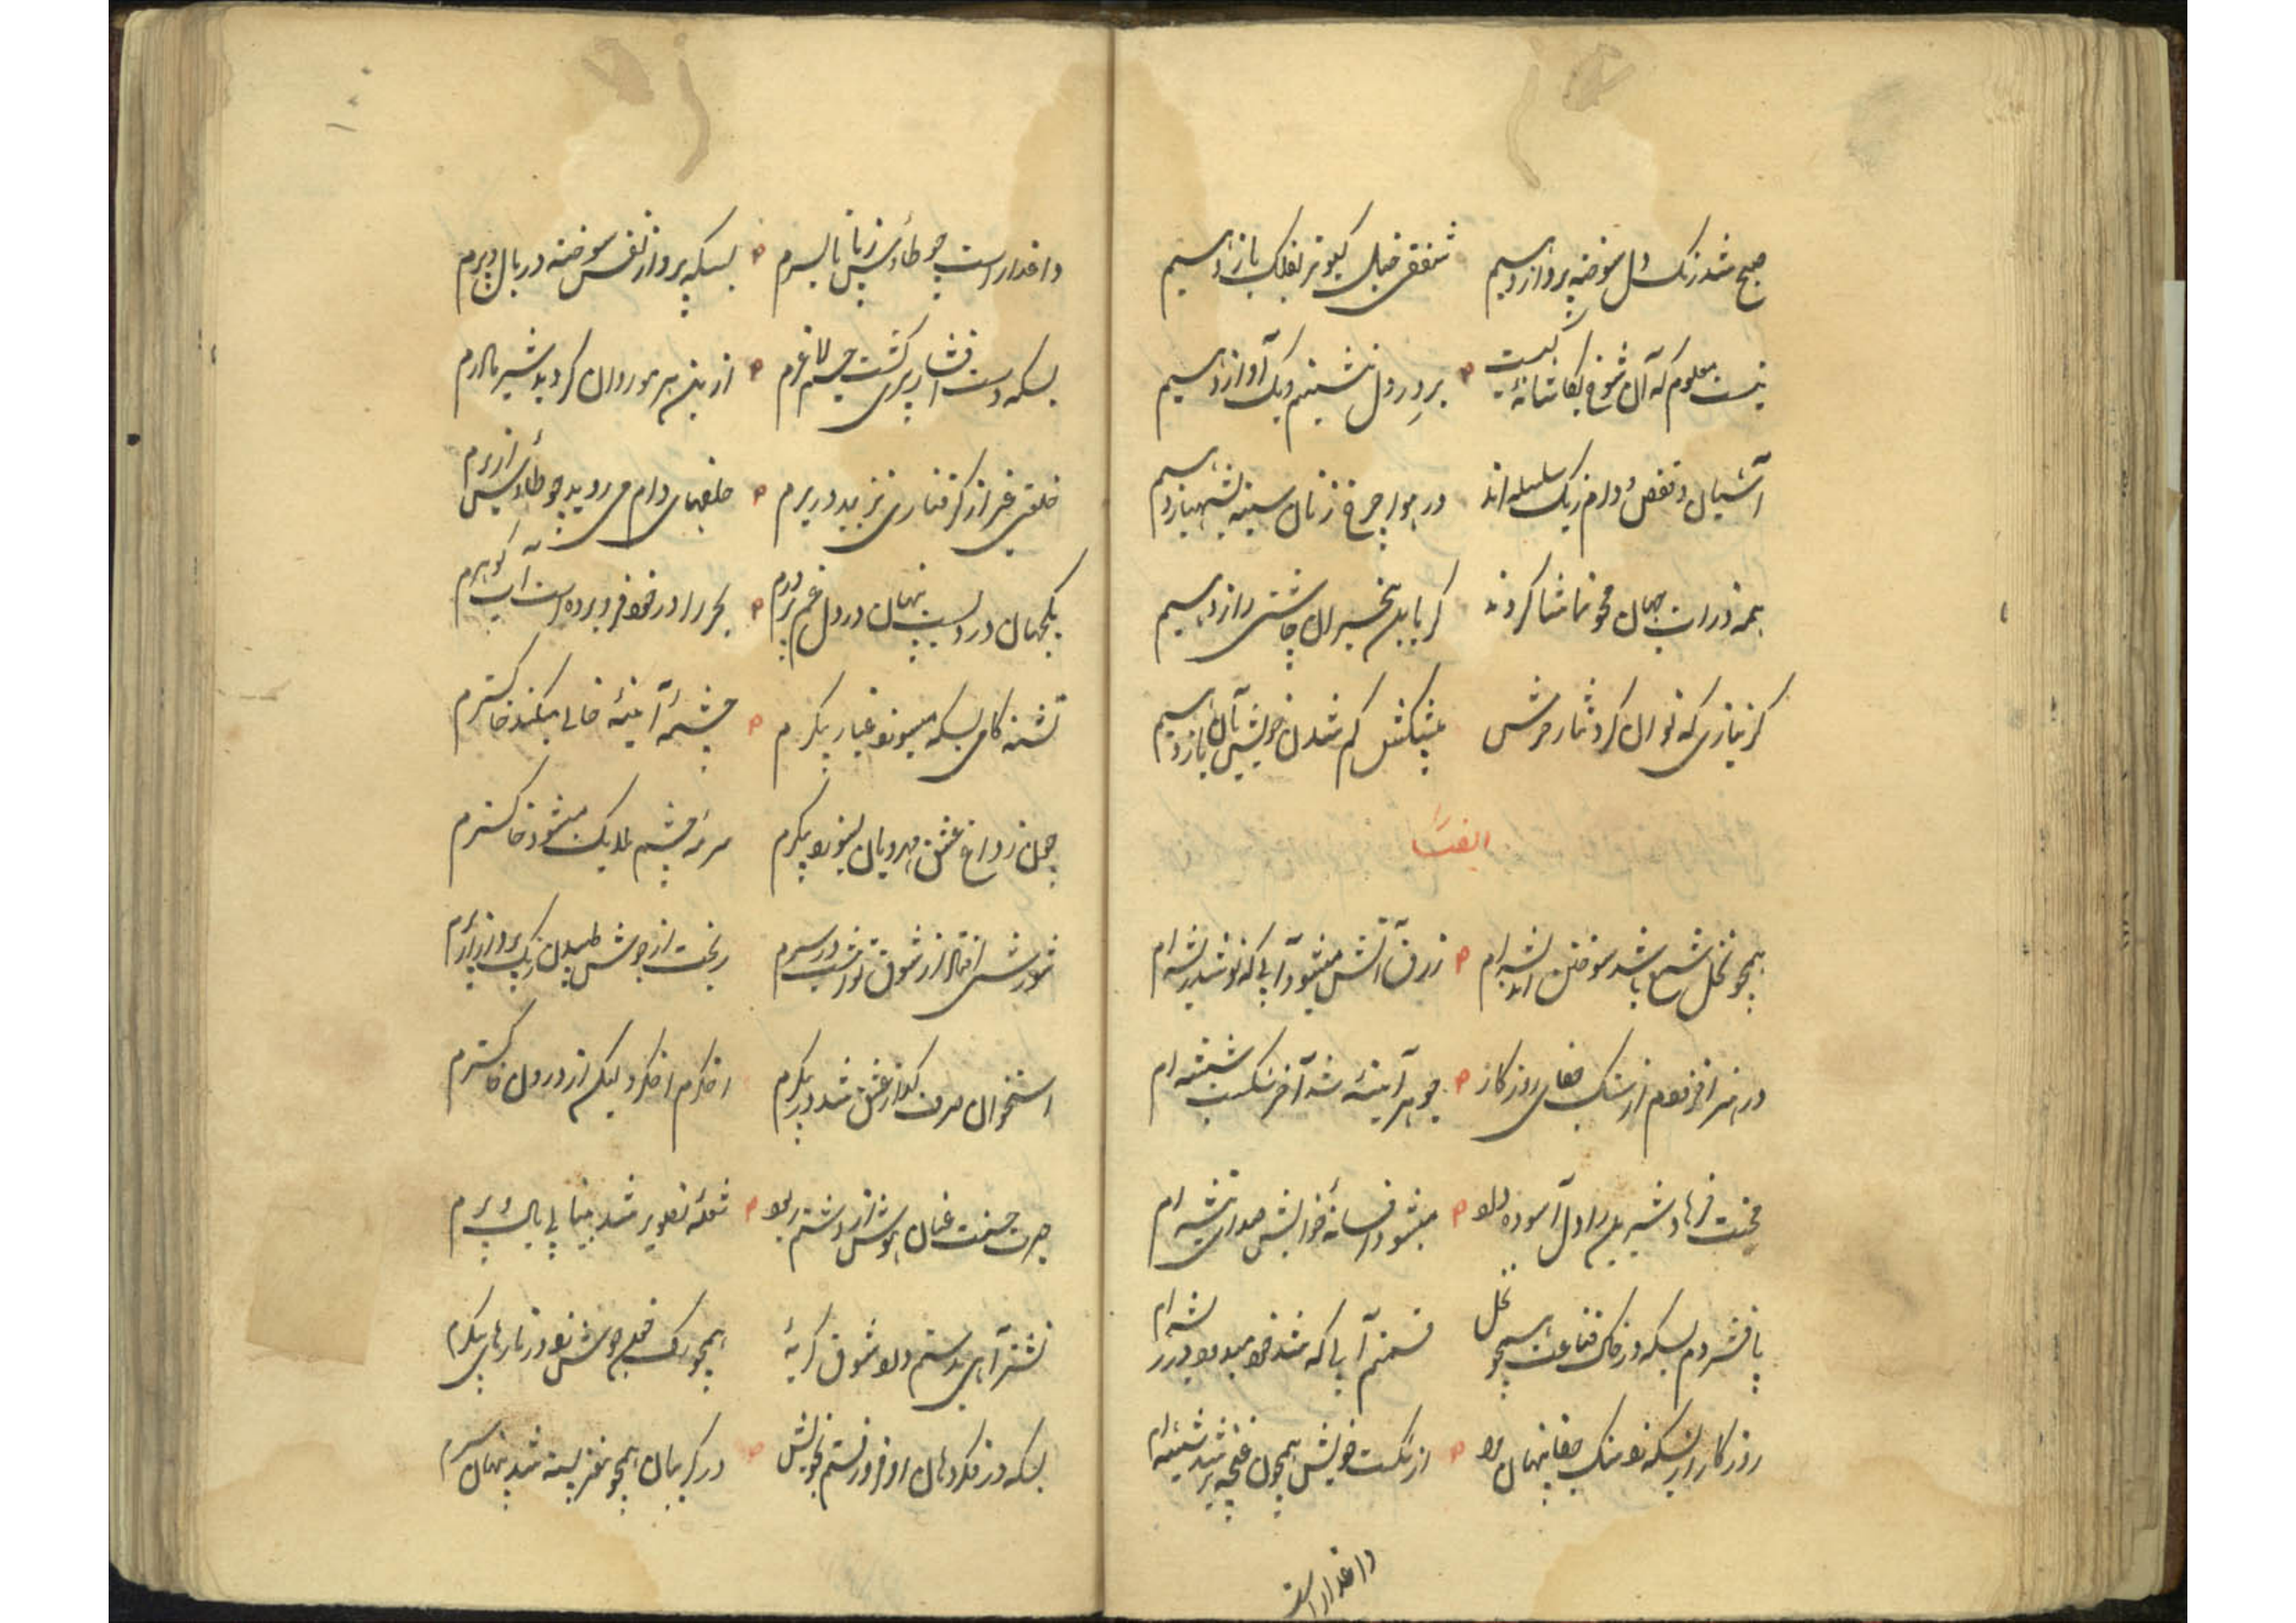 صبح شد زنگ دل سوخته پرواز دهیم شفقی خیل کبوتر بفلک باز دهیم
نیست معلوم که آن شوخ بکاشانه کیست بر در دل بنشینیم و یک آواز دهیم
آشیان و قفس و دام ز یک سلسله اند در هوا چرخ زنان سینه بشهباز دهیم
همه ذرات جهان محو تماشا کردند گر بآن بیخبران چاشنی راز دهیم
گر نیازی که توان کرد نثار رهش پیشکش گم شدن خویش بآن ناز دهیم
ایضاً
همچو نخل شمع باشد سوختن اندیشه ام زرق آتش میشود آبی که نوشد ریشه ام
در هنر افزودم از سنگ جفای روزگار جوهر آیینه شد آخر شکست شیشه ام
محنت فرهاد شیرین را دل آسوده بود میشود افسانه خوابش صدای تیشه ام
پا فشردم بسکه در خاک قناعت همچو نخل قسمتم آبی که شد خود میدود در ریشه ام
روزگار از بسکه سنگ جفا پنهان از شکست خویش همچون غنچه پر شد شیشه ام
داغدار است
داغدار است چو طاؤس ز پا تا بسرم بسکه پرواز نفس سوخته در بال و پرم
بسکه دست افشار پیری گشت جسم لاغرم از بن هر مو روان گردید شیر مادرم
خلقتی غیر از گرفتاری نزیبد در برم حلقهای دام می روید چو طاؤس از پرم
یکجهان دردست پنهان در دل غم پرورم بحر را در خود فرو برده است آب گوهرم
تشنه کامی بسکه میسوزد غبار پیکرم چشمه آیینه خالی میکند خاکسترم
چون ز داغ عشق مهرویان بسوزد پیکرم سرمه چشم ملایک میشود خاکسترم
شورشی افتاد از شوق تو امشب در سرم ریخت از جوش طپیدن رنگ پرواز از پرم
استخوان صرف گداز عشق شد در پیکرم اخگرم اخگر ولیکن از درون خاکسترم
حیرت حسنت عنان هوش از دستم ربود شعله تصویر شد بیتابی بال و پرم
نشتر آهی بدستم داد شوق گریه همچو رگ خون جوش زد در تارهای پیکرم
بسکه در فکر دهان او فرو رفتم بخویش در گریبان همچو مغز پسته شد پنهان سرم